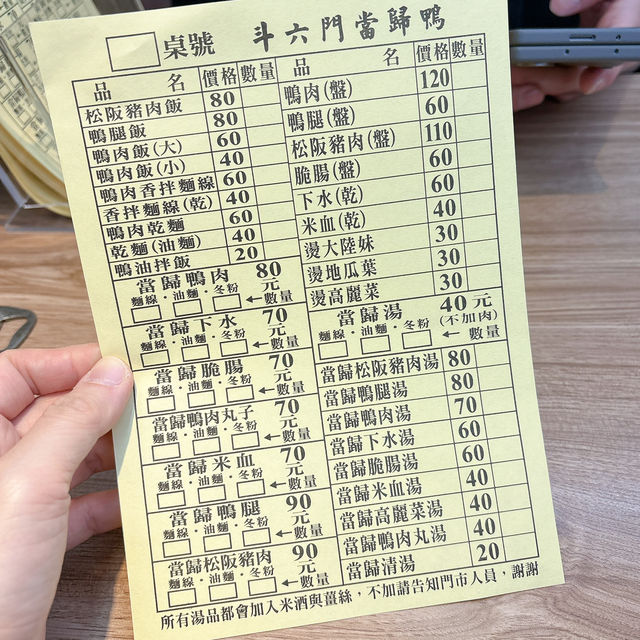 桌號 斗六門當歸鴨
品名 價格 數量
松阪豬肉飯 80
鴨腿飯 80
鴨肉飯(大) 60
鴨肉飯(小) 40
鴨肉香拌麵線 60
香拌麵線(乾) 40
鴨肉乾麵 60
乾麵(油麵) 40
鴨油拌飯 20
當歸鴨肉 80元
麵線・油麵・冬粉 ←數量
當歸下水 70元
麵線・油麵・冬粉 ←數量
當歸脆腸 70元
麵線・油麵・冬粉 ←數量
當歸鴨肉丸子 70元
麵線・油麵・冬粉 ←數量
當歸米血 70元
麵線・油麵・冬粉 ←數量
當歸鴨腿 90元
麵線・油麵・冬粉 ←數量
當歸松阪豬肉 90元
麵線・油麵・冬粉 ←數量
品名 價格 數量
鴨肉(盤) 120
鴨腿(盤) 60
松阪豬肉(盤) 110
脆腸(盤) 60
下水(乾) 60
米血(乾) 40
燙大陸妹 30
燙地瓜葉 30
燙高麗菜 30
當歸湯 40元
麵線・油麵・冬粉 (不加肉)
←數量
當歸松阪豬肉湯 80
當歸鴨腿湯 80
當歸鴨肉湯 70
當歸下水湯 60
當歸脆腸湯 60
當歸米血湯 40
當歸高麗菜湯 40
當歸鴨肉丸湯 40
當歸清湯 20
所有湯品都會加入米酒與薑絲，不加請告知門市人員，謝謝